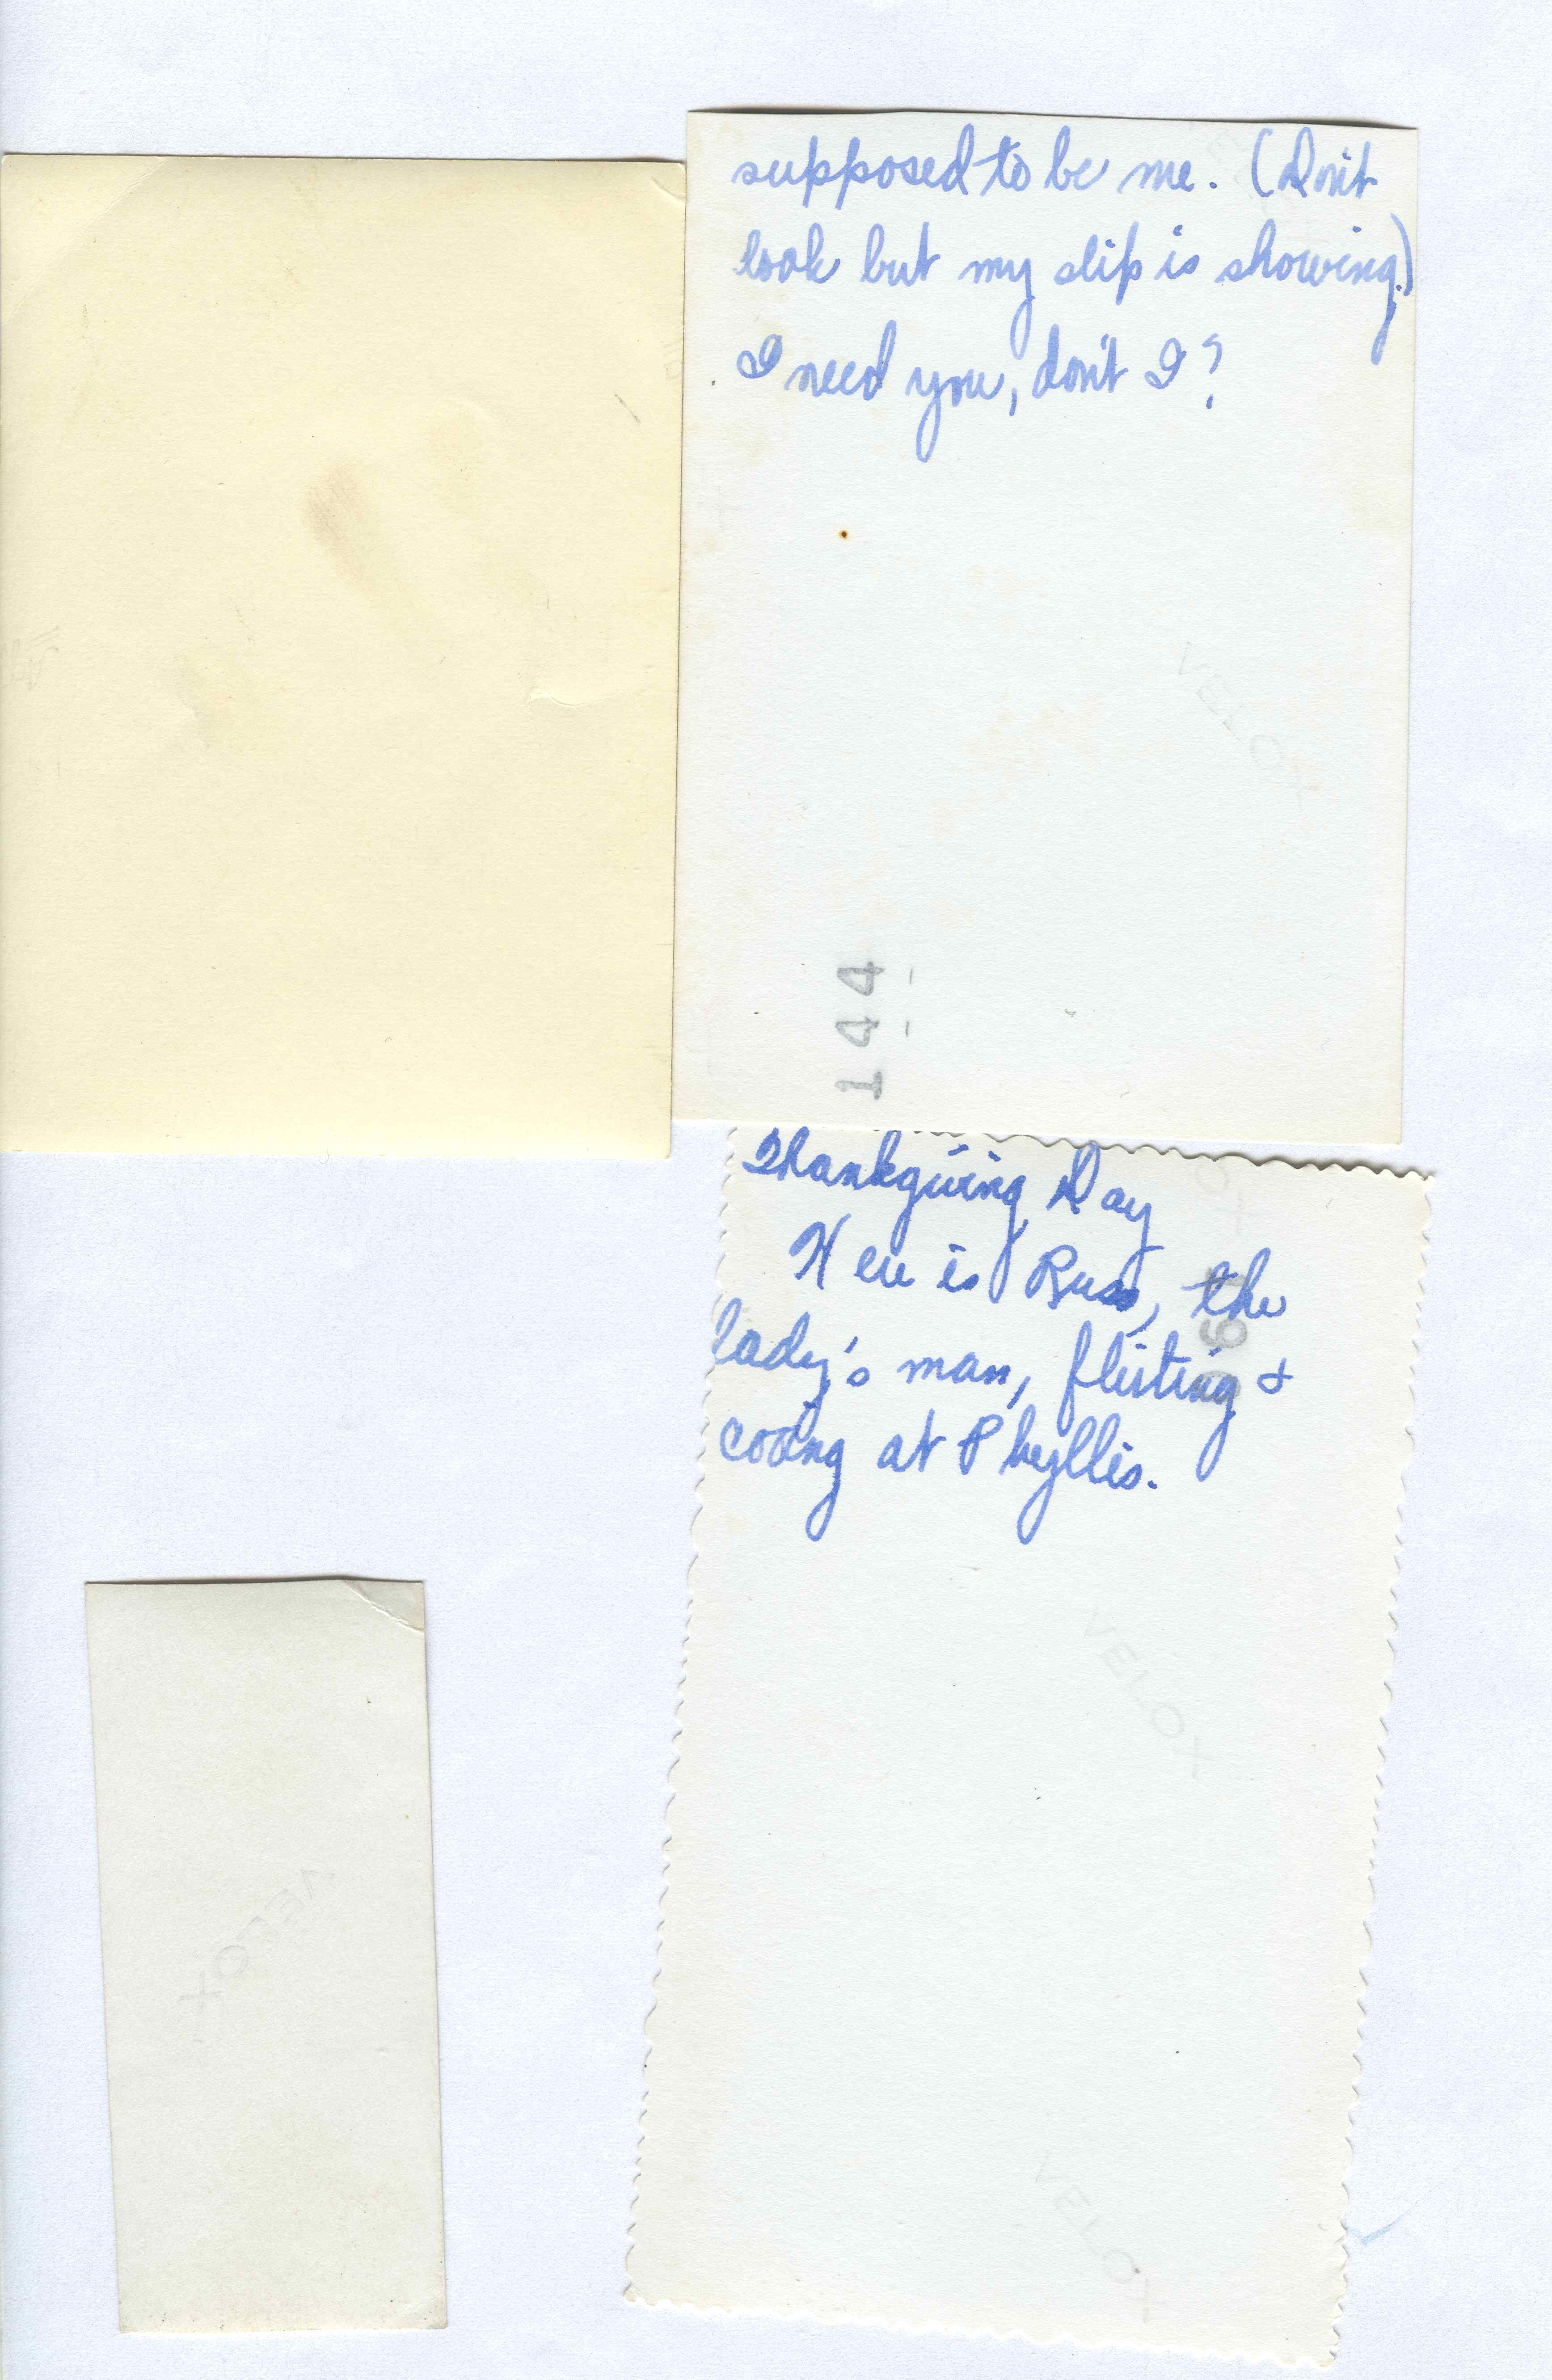 supposed to be me. (Don't
look but my slip is showing.)
I need you, don't I?
144
Thankgiving Day
Here is Russ, the
lady's man, flirting &
cooing at Phyllis.
VELOX
VELOX
VELOX